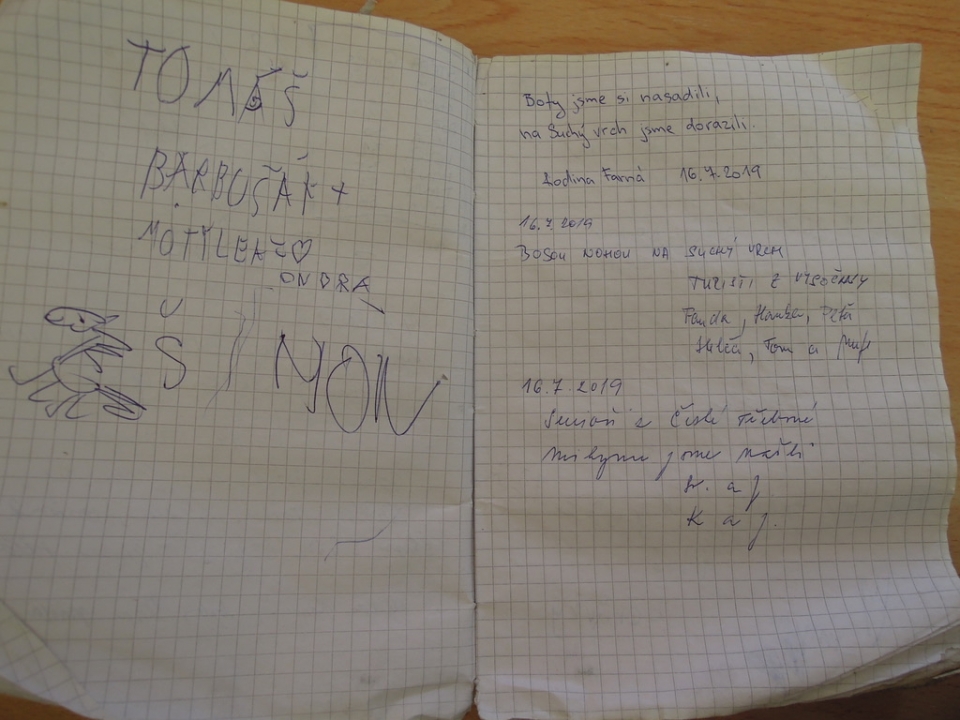 TOMÁŠ
BARBOŠÁK +
MOTÝLEK = ♡
ONDRA
ŠIMON
Boty jsme si nasadili,
na Suchý vrch jsme dorazili.
Rodina Farná 16.7.2019
16.7.2019
BOSOU NOHOU NA SUCHÝ VRCH
TURISTI Z VYSOČINY
Fanda, Péťa
Tom a
16.7.2019
z České Třebové
jsme našli
K a J.